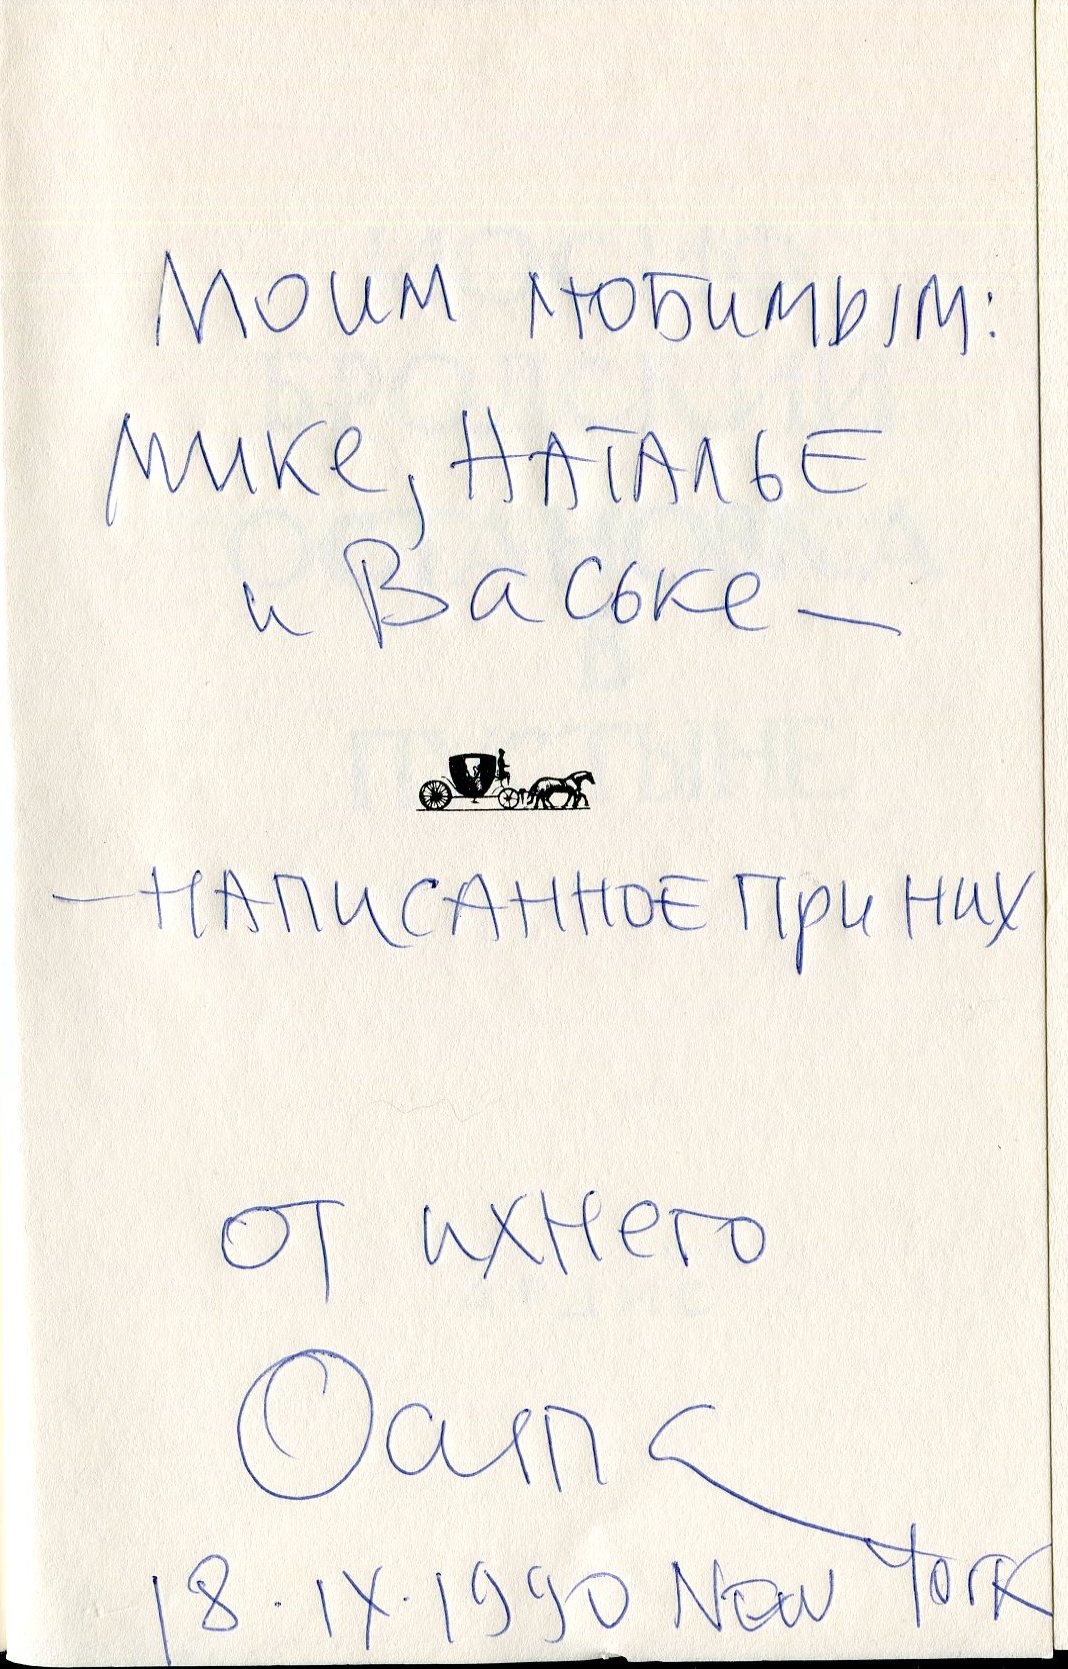 Моим любимым:
Мике, Наталье
и Ваське —
— написанное при них
от ихнего
18.IX.1990 New York